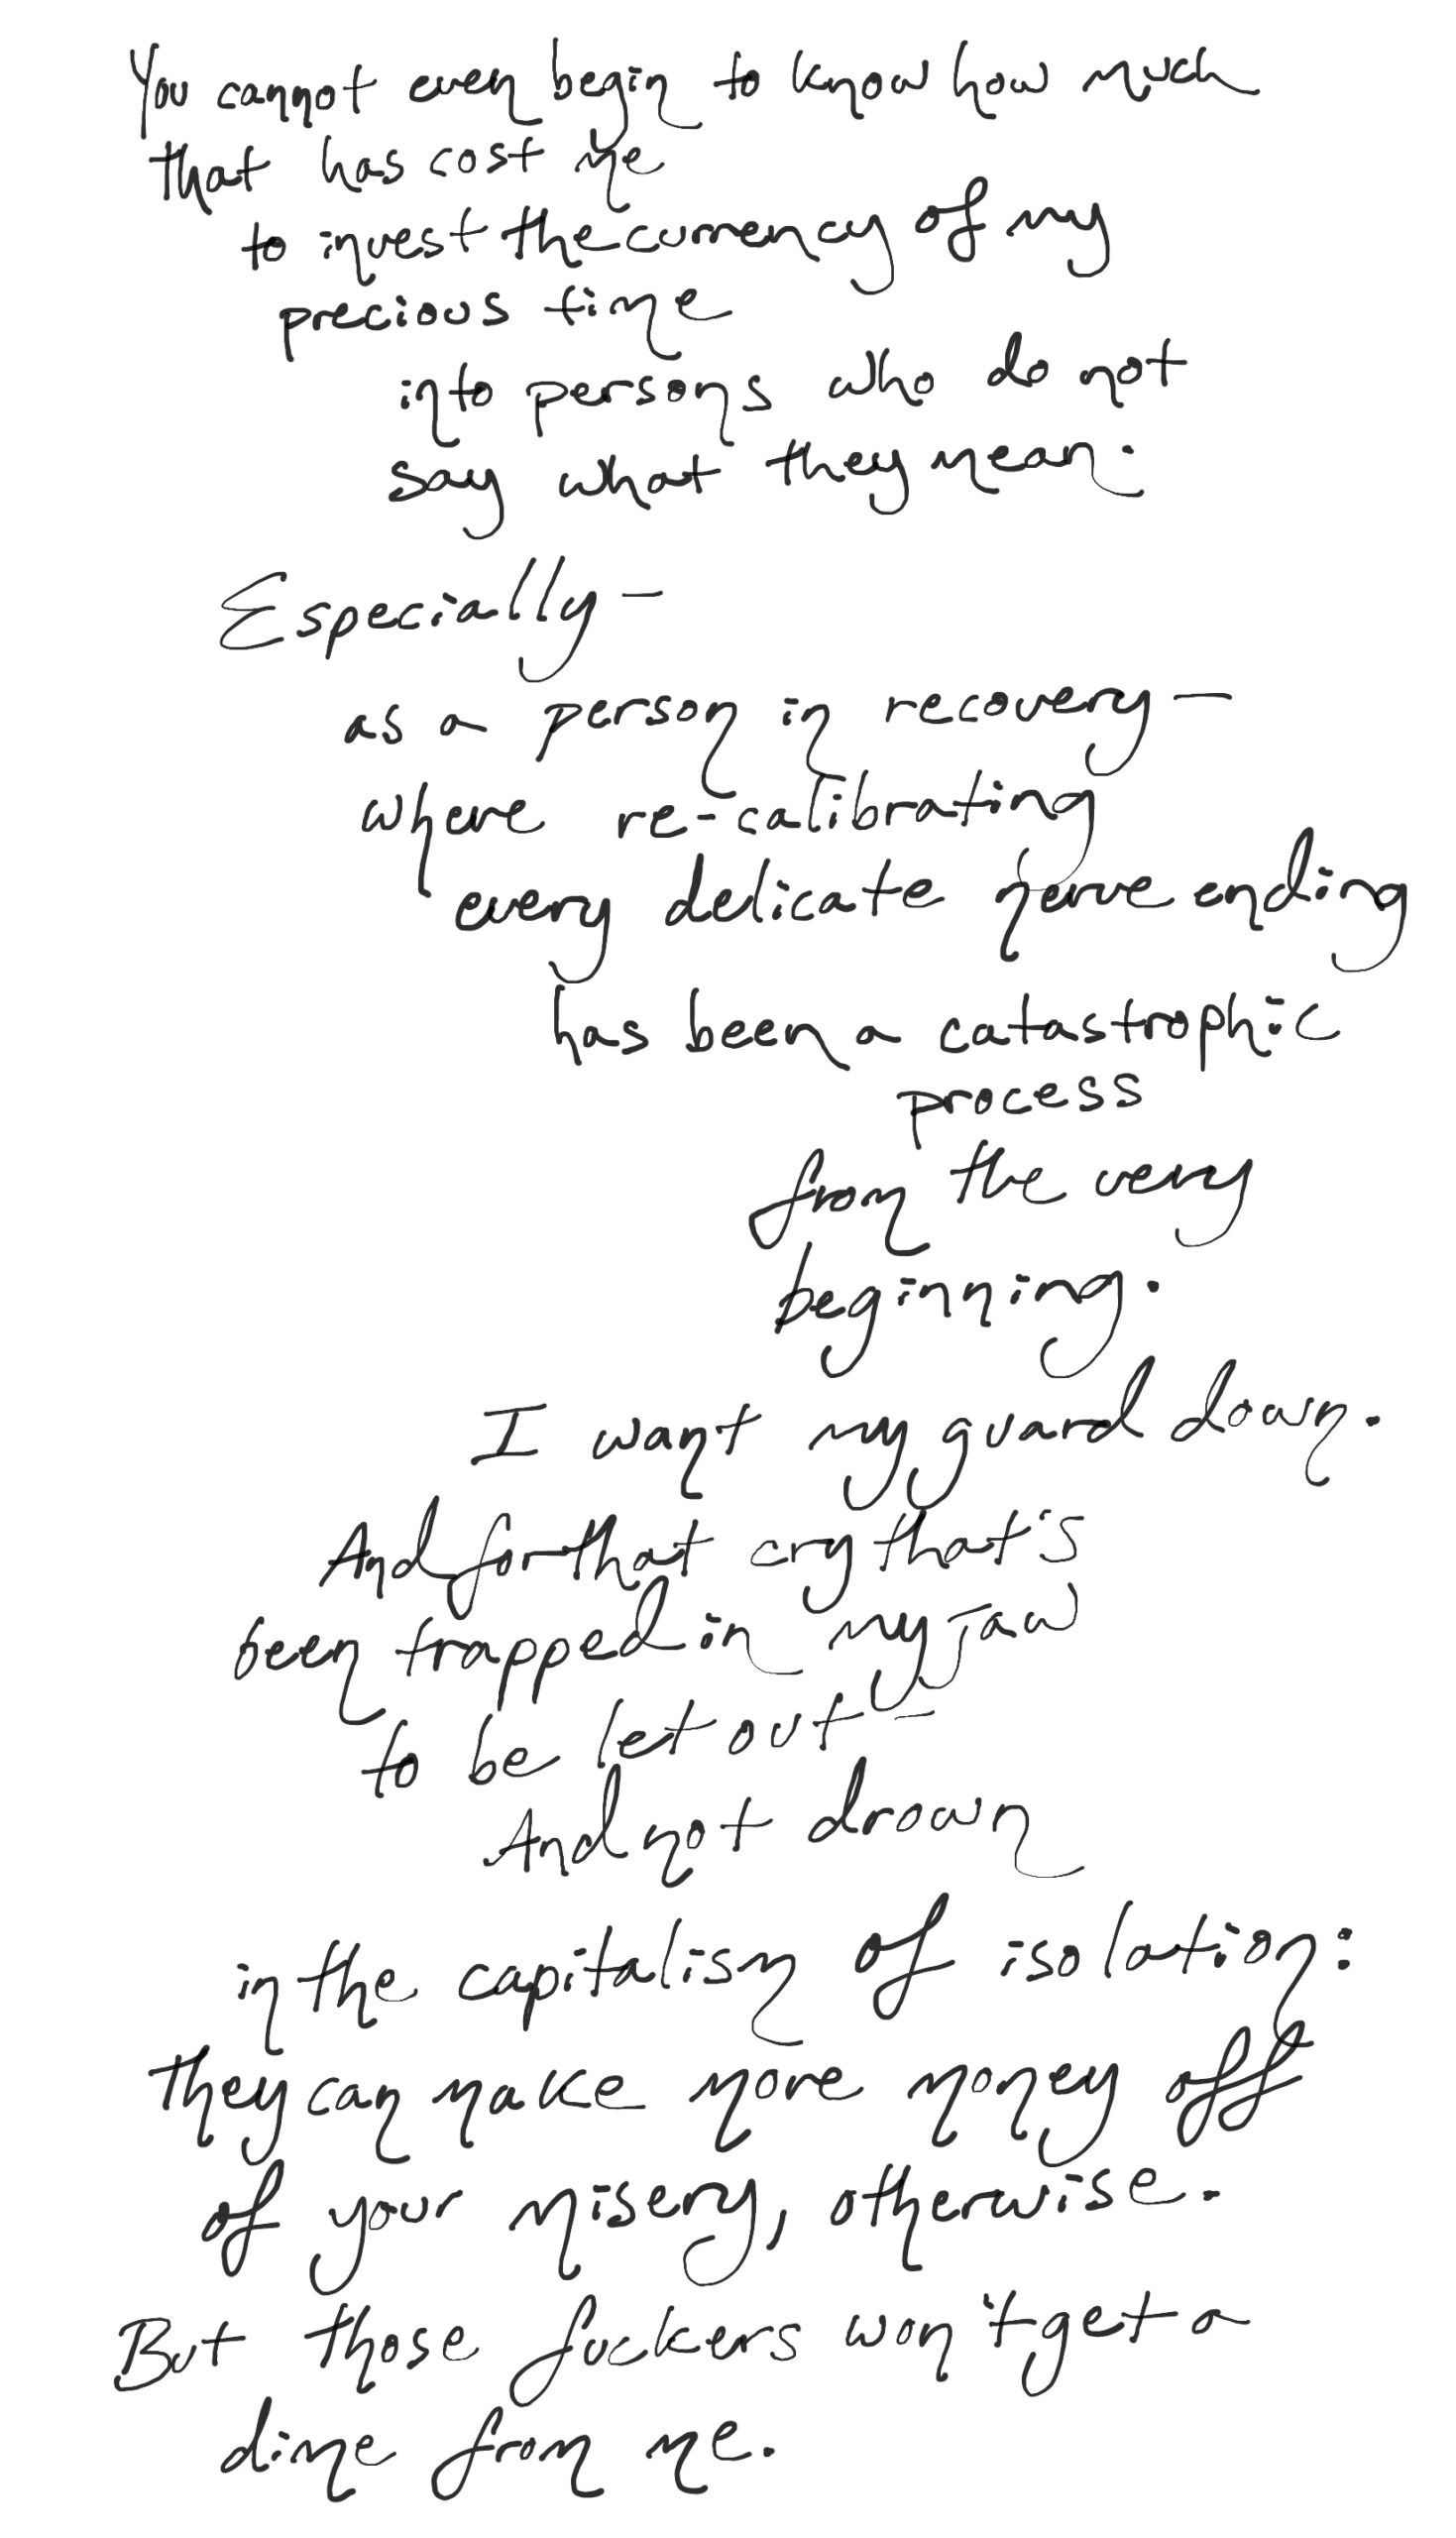 You cannot even begin to know how much
that has cost me
to invest the currency of my
precious time
into persons who do not
say what they mean.
Especially—
as a person in recovery—
where re-calibrating
every delicate nerve ending
has been a catastrophic
process
from the very
beginning.
I want my guard down.
And for that cry that's
been trapped in my jaw
to be let out—
And not drown
in the capitalism of isolation:
they can make more money off
of your misery, otherwise.
But those fuckers won't get a
dime from me.